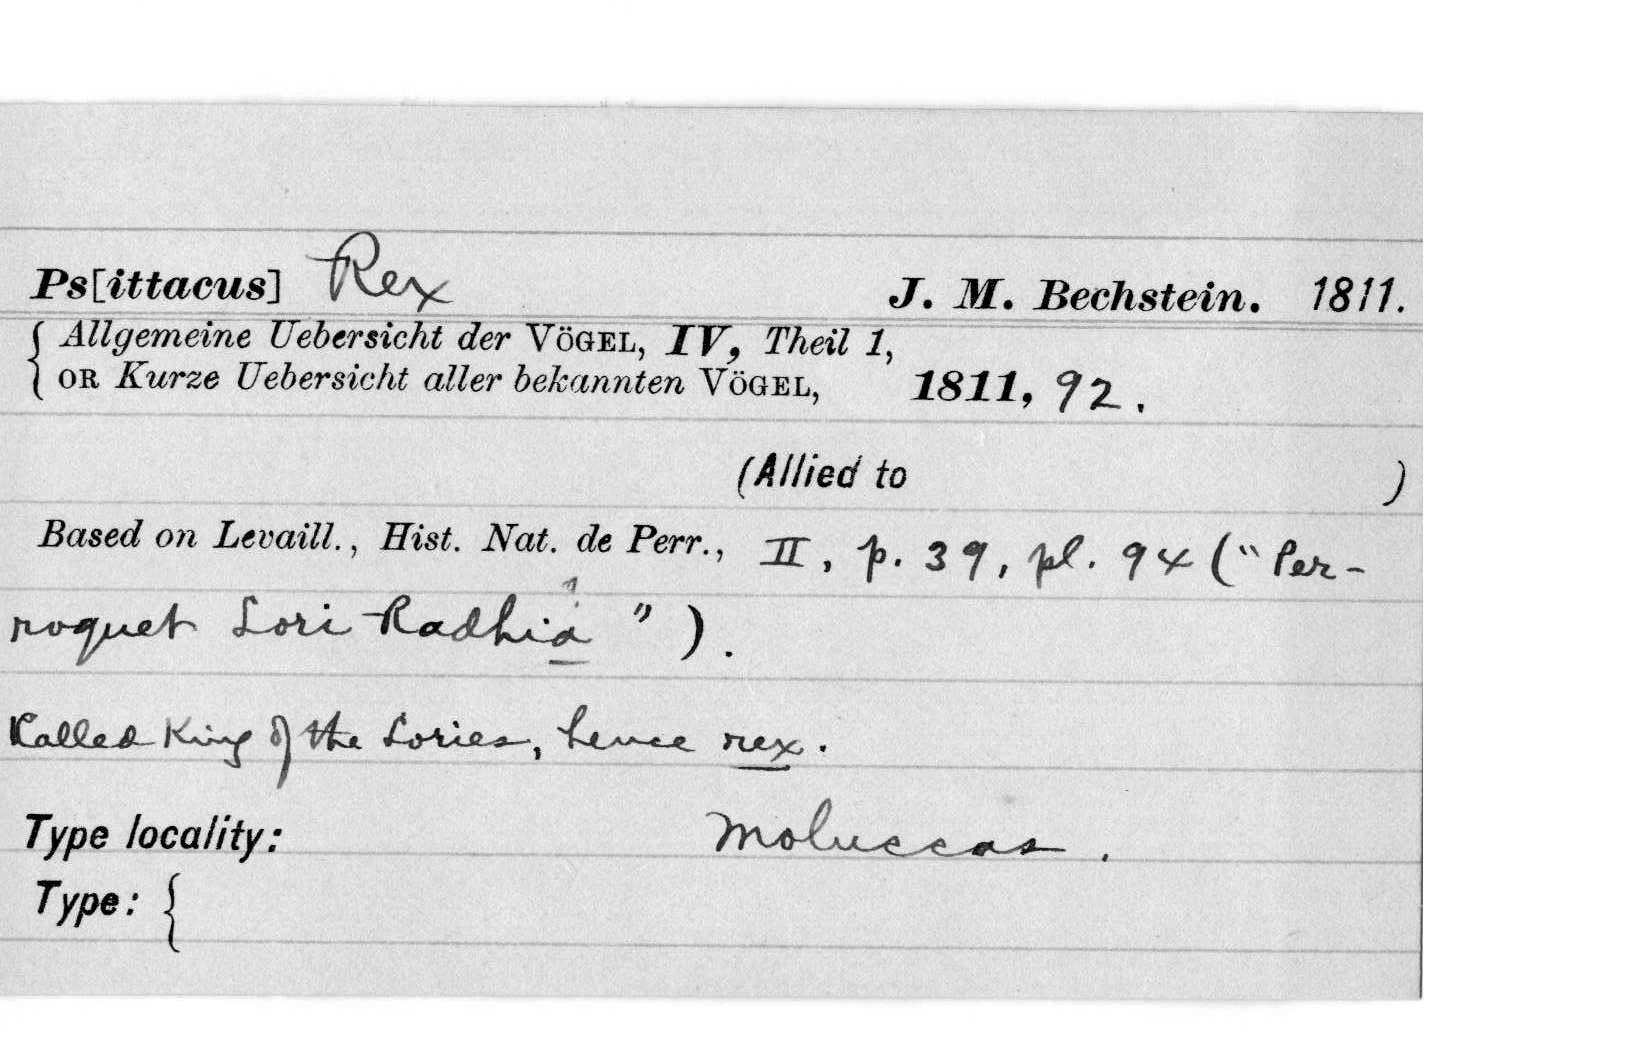 Ps[ittacus] Rex J. M. Bechstein. 1811.
{ Allgemeine Uebersicht der VÖGEL, IV, Theil 1,
{ OR Kurze Uebersicht aller bekannten VÖGEL, 1811, 92.
(Allied to )
Based on Levaill., Hist. Nat. de Perr., II, p. 39, pl. 94 ("Per-
roquet Lori Radhia").
Called King of the Lories, hence rex.
Type locality: Moluccas.
Type: {